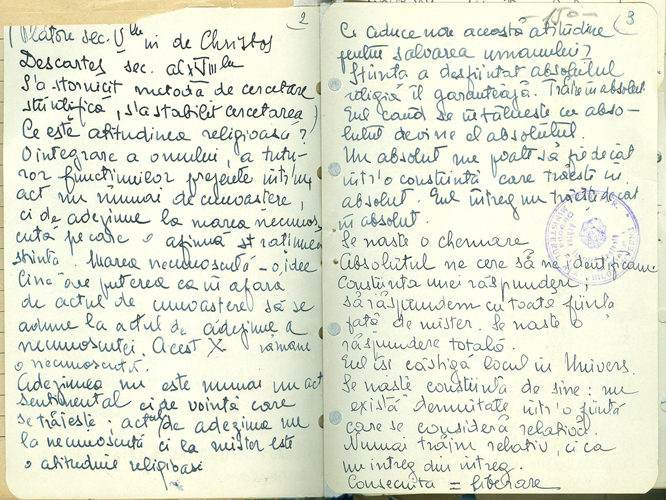 2
(Platon sec. V în în de Christos
Descartes sec. al XVII lea
S'a stornicit metodă de cercetare
științifică, s'a stabilit cercetarea)
Ce este atitudinea religioasă?
O integrare a omului, a tutu-
ror funcțiunilor prezente într'un
act nu numai de cunoaștere,
ci de adeziune la marea necunos-
cută pe care o afirmă și rațiunea
știința. Marea necunoscută – o idee
Cine are puterea ca în afară
de actul de cunoaștere să se
adune la actul de adeziune a
necunoscutei. Acest X rămâne
o necunoscută.
Adeziunea nu este numai un act
sentimental ci de voință care
se trăiește; actul de adeziune nu
la necunoscută ci la mister este
o atitudine religioasă
150-
3
Ce aduce nou această atitudine
pentru salvarea umanului?
Știința a desființat absolutul
religia îl garantează. Trăire în absolut
Eul când se întâlnește cu abso-
lutul devine el absolutul.
Un absolut nu poate să fie decât
într'o conștiință care trăiește în
absolut. Eul întreg nu trăiește decât
în absolut.
Se naște o chemare
Absolutul ne cere să ne identificăm
Conștiința unei răspunderi
să răspundem cu toată ființa
față de mister. Se naște o
răspundere totală.
Eul își câștigă locul în Univers.
Se naște conștiința de sine: nu
există demnitate într'o ființă
care se consideră relativă.
Numai trăim relativ, ci ca
un întreg din întreg.
Consecința = liberare